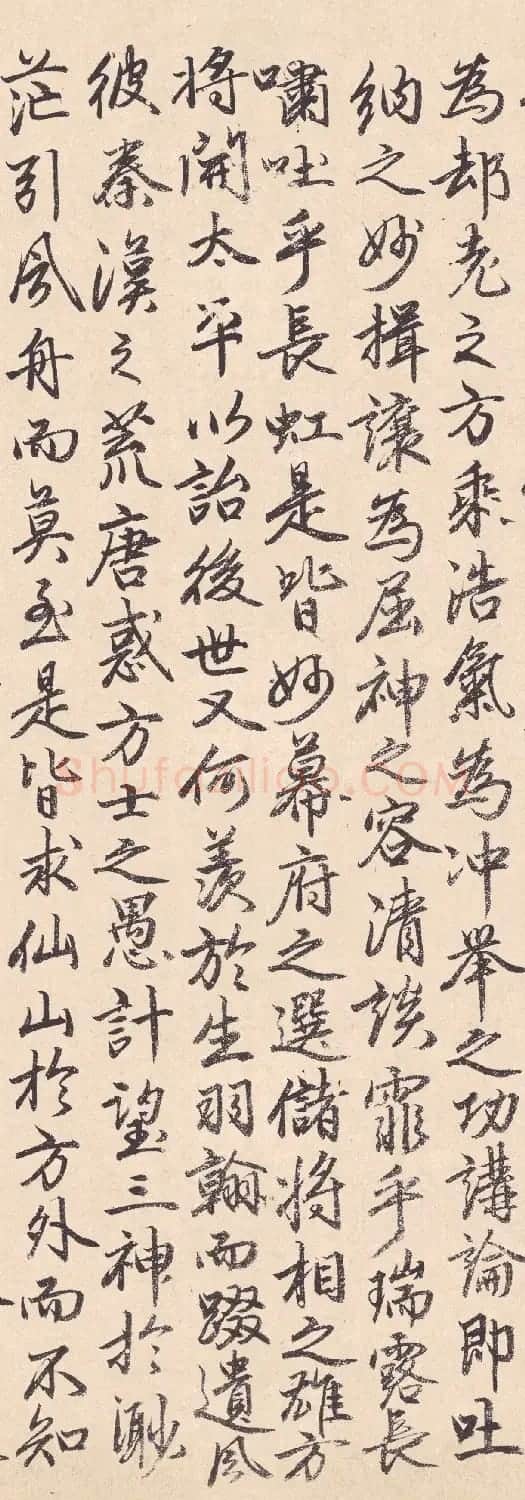 為却老之方乘浩氣為冲舉之功講論即吐
納之妙揖讓為屈神之容清談霏乎瑞露長
嘯吐乎長虹是皆妙幕府之選儲將相之雄方
將開太平以詒後世又何羨於生羽翰而躡遺风
彼秦漢之荒唐惑方士之愚計望三神於渺
茫引风舟而莫至是皆求仙山於方外而不知
Shufaziliao.COM